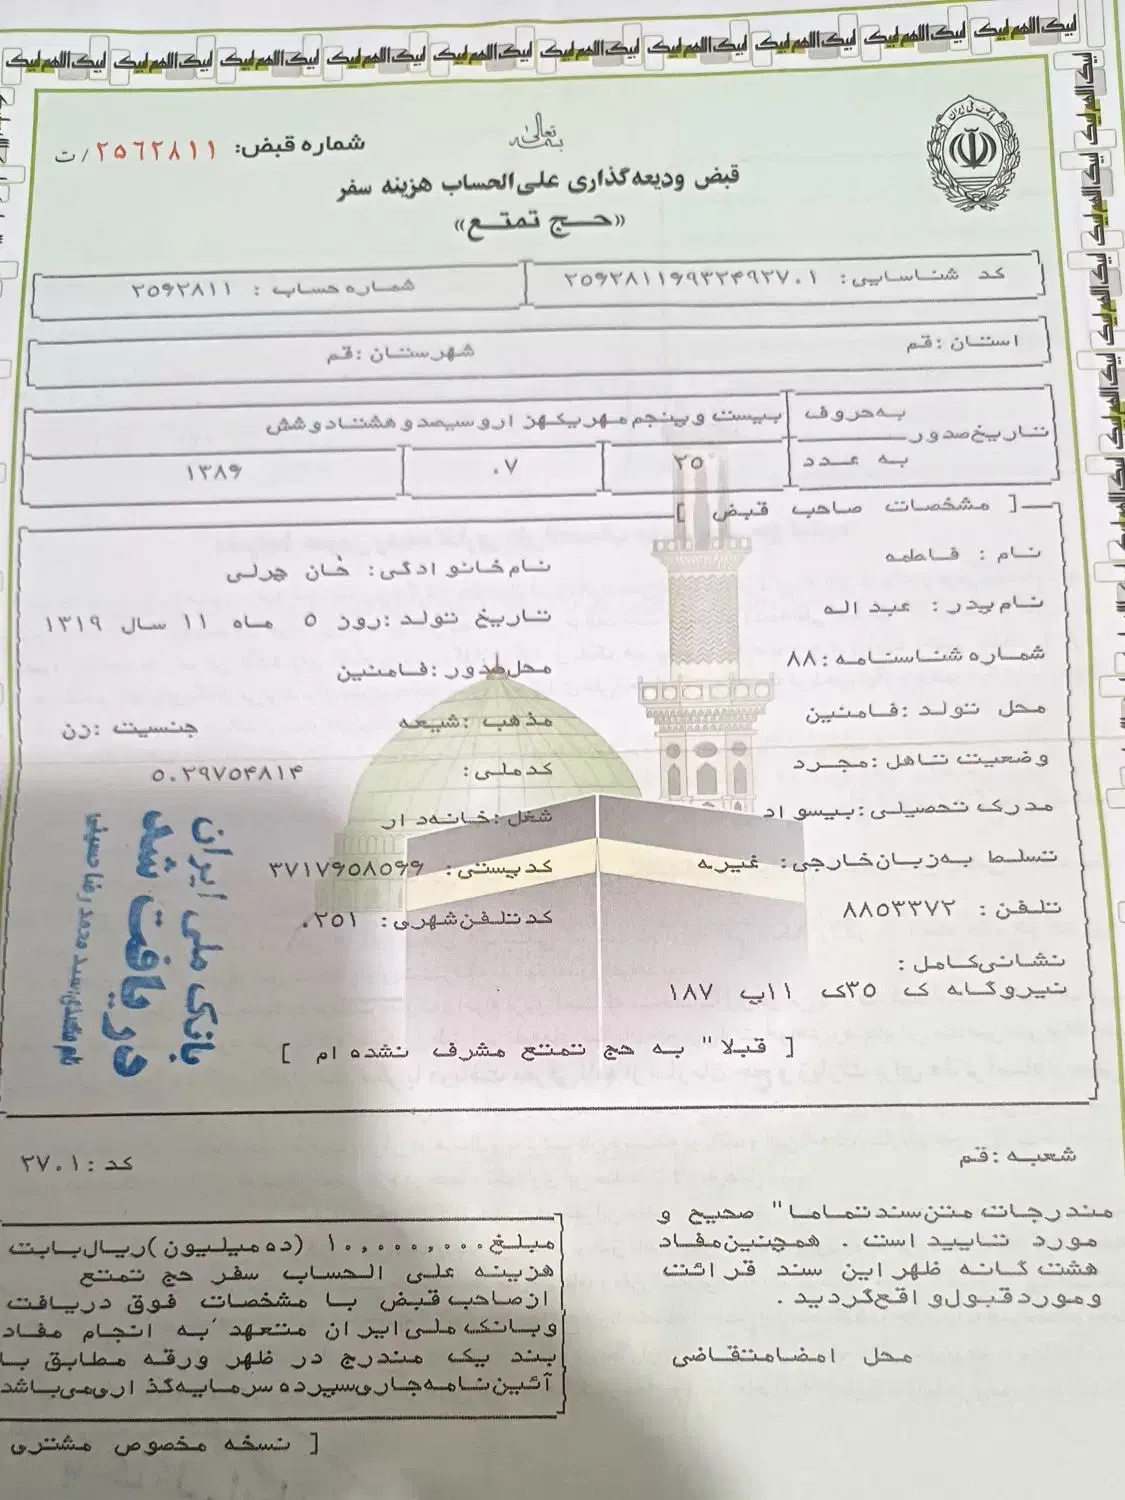 لبیک اللهم لبیک لبیک اللهم لبیک لبیک اللهم لبیک لبیک اللهم لبیک لبیک اللهم لبیک لبیک اللهم لبیک لبیک اللهم لبیک لبیک اللهم لبیک لبیک اللهم لبیک لبیک اللهم لبیک
بسمه تعالی
شماره قبض: ۲۵۶۲۸۱۱/ت
قبض ودیعه‌گذاری علی‌الحساب هزینه سفر
«حج تمتع»
کد شناسایی: ۲۵۶۲۸۱۱۶۹۳۲۴۹۲۷۰۱
شماره حساب : ۲۵۶۲۸۱۱
استان :قم
شهرستان :قم
تاریخ صدور
به حروف
بیست و پنجم مهر یکهزار و سیصد و هشتاد و شش
به عدد
۲۵
۰۷
۱۳۸۶
[ مشخصات صاحب قبض ]
نام : فاطمه
نام خانوادگی: خان چرلی
نام پدر : عبداله
تاریخ تولد :روز ۵ ماه ۱۱ سال ۱۳۱۹
شماره شناسنامه :۸۸
محل صدور :فامنین
محل تولد :فامنین
مذهب :شیعه
جنسیت :زن
وضعیت تاهل :مجرد
کدملی: ۵۰۲۹۷۵۴۸۱۴
مدرک تحصیلی :بیسواد
شغل :خانه‌دار
تسلط به زبان خارجی: غیره
کد پستی: ۳۷۱۷۶۵۸۵۶۶
تلفن : ۸۸۵۳۳۷۲
کد تلفن شهری: ۰۲۵۱
نشانی کامل :
نیروگاه ک ۳۵ک ۱۱پ ۱۸۷
[ قبلا" به حج تمتع مشرف نشده ام ]
بانک ملی ایران
دریافت شد
سید محمد رضا حسینی
شعبه :قم
کد :۲۷۰۱
مندرجات متن سند تماما" صحیح و
مورد تایید است . همچنین مفاد
هشت گانه ظهر این سند قرائت
و مورد قبول واقع گردید .
محل امضا متقاضی
مبلغ ۱۰,۰۰۰,۰۰۰ (ده میلیون )ریال بابت
هزینه علی الحساب سفر حج تمتع
از صاحب قبض با مشخصات فوق دریافت
و بانک ملی ایران متعهد به انجام مفاد
بند یک مندرج در ظهر ورقه مطابق با
آئین نامه جاری سپرده سرمایه گذاری می باشد
[ نسخه مخصوص مشتری